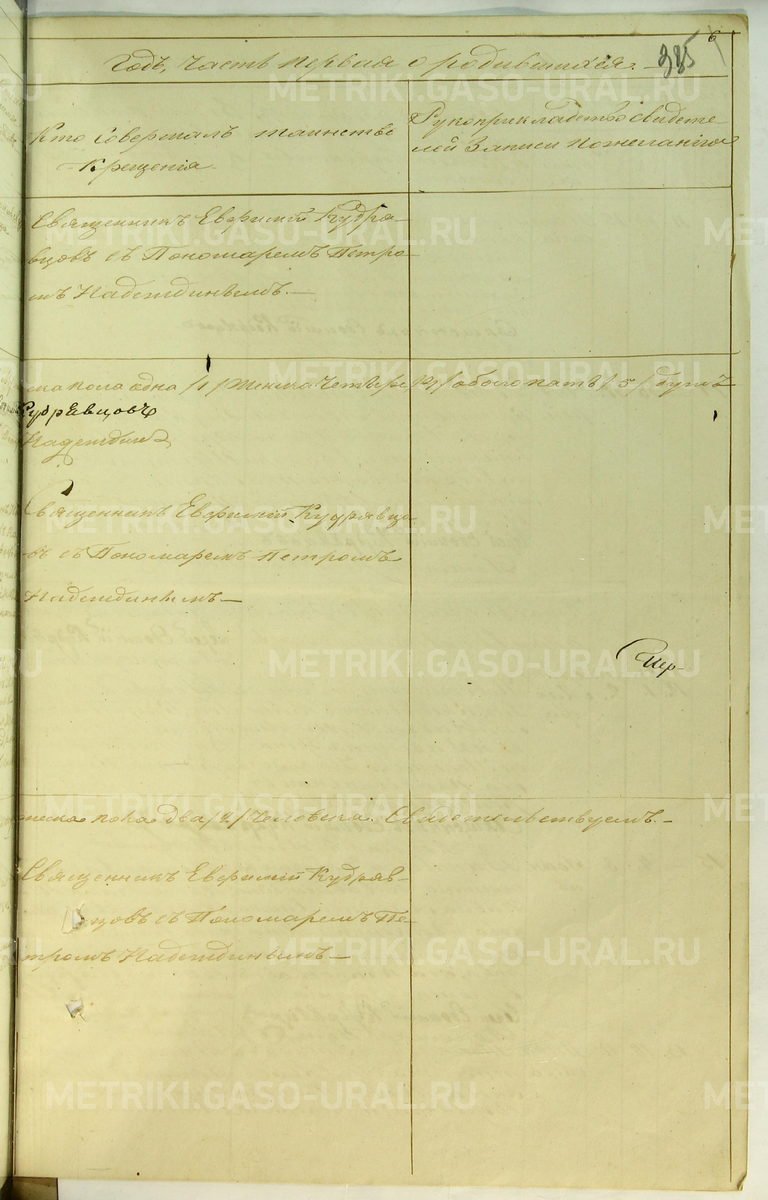 6
385
Годъ, Часть первыя о родившихся.
Кто совершалъ таинство
Крещенія
Рукоприкладство свидете-
лей записи пожеланію
Священникъ Евфимій Кудря-
вцовъ съ Пономаремъ Петро-
мъ Надеждинымъ.—
пола одна /1/ женска четыре /4/ обоего пять /5/ душъ
Кудрявцовъ
Надеждинъ
Священникъ Евфимій Кудрявцо-
въ съ Пономаремъ Петромъ
Надеждинымъ—
пола два /2/ Человека. Свидетельствуемъ.—
Священникъ Евфимій Кудряв-
цовъ съ Пономаремъ Пе-
тромъ Надеждинымъ—
METRIKI.GASO-URAL.RU